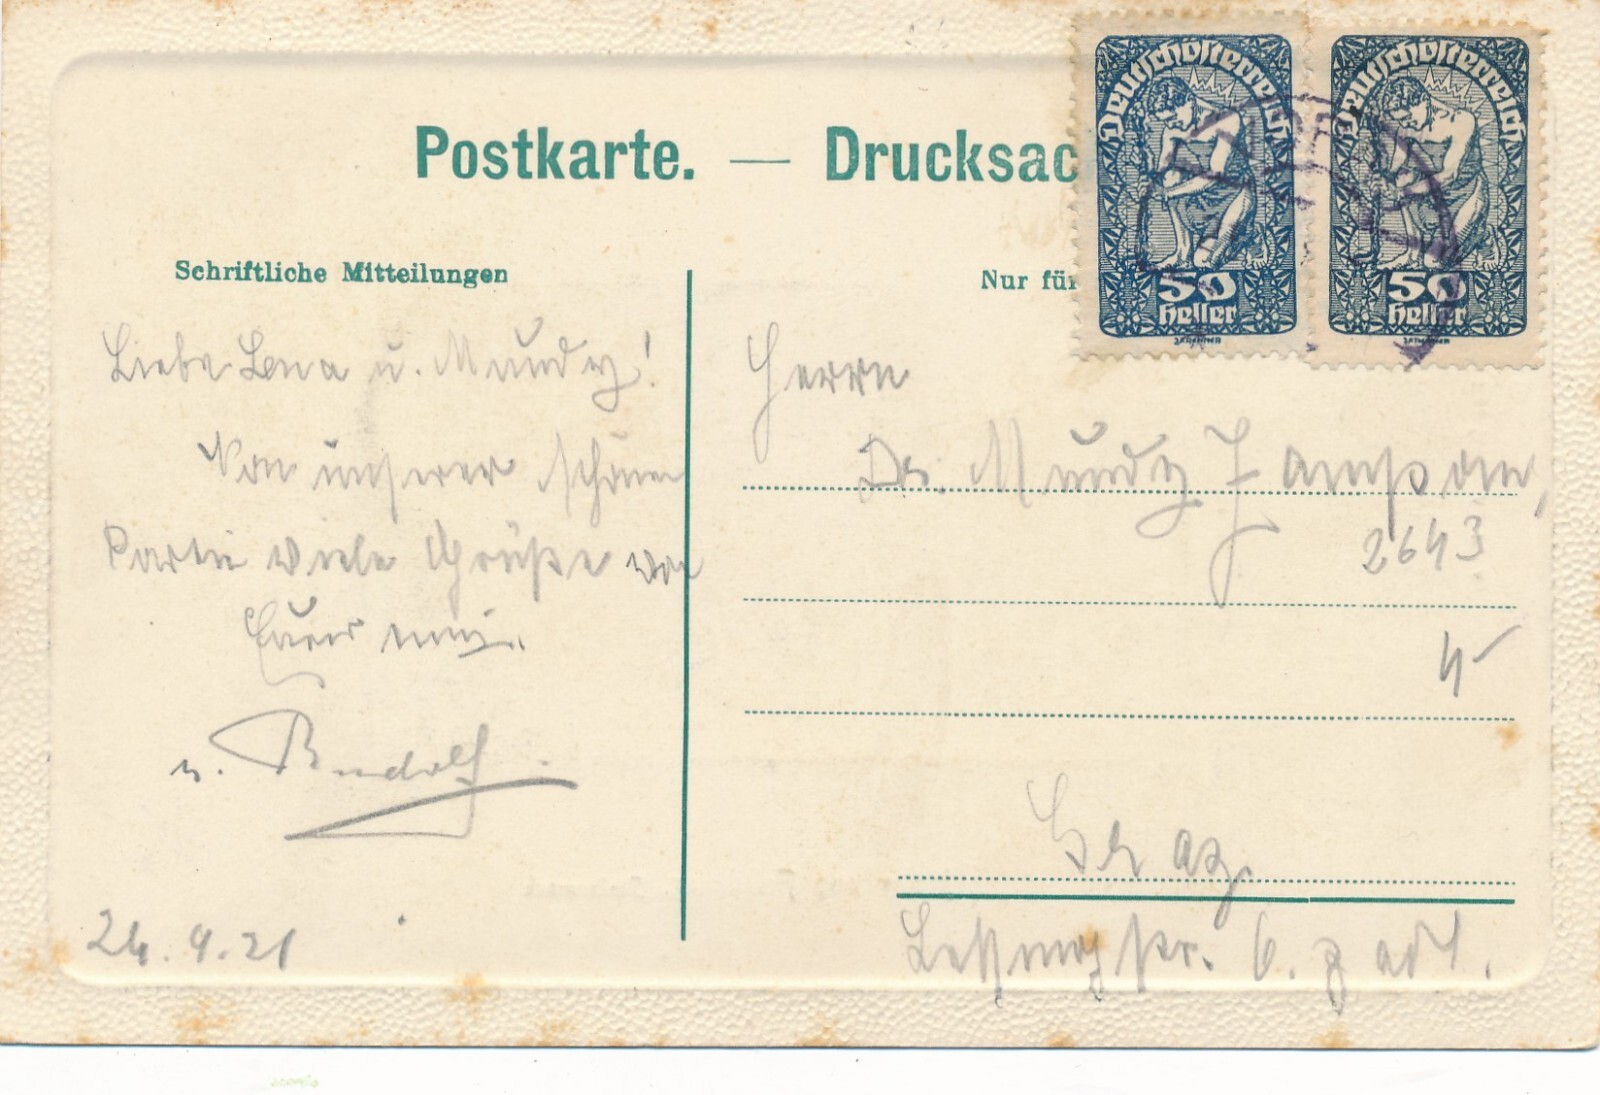 Postkarte. — Drucksac
Deutschösterreich
50
Heller
Deutschösterreich
50
Heller
Schriftliche Mitteilungen
Nur für
Liebe Lena u. Mundy!
Von unserer schönen
Partie viele Grüße von
Eurer
u. Rudolf.
24. 4. 21
Herrn
Dr. Mundy
2643
4-
Graz
Lessingstr. 6.